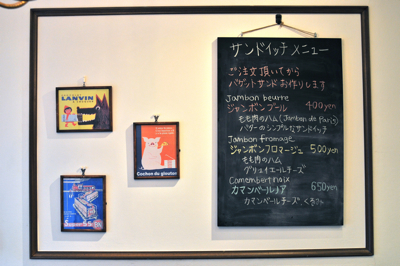 LANVIN
Cochon de glouton
サンドイッチ メニュー
ご注文頂いてから
バゲットサンドお作りします
Jambon beurre
ジャンボンブール 400yen
もも肉のハム(Jambon de Paris)
バターのシンプルなサンドイッチ
Jambon fromage
ジャンボンフロマージュ 500yen
もも肉のハム
グリュイエールチーズ
Camembert noix
カマンベールノア 650yen
カマンベールチーズ くるみ